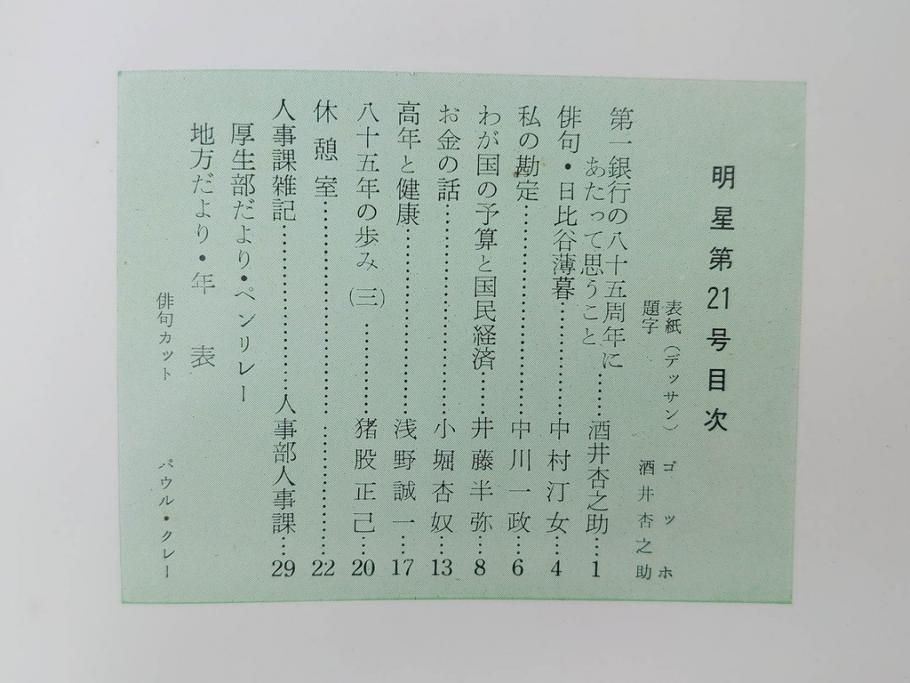 明星第21号目次
表紙（デッサン） ゴッホ
題字 酒井杏之助
第一銀行の八十五周年に
あたって思うこと……酒井杏之助…1
俳句・日比谷薄暮……中村汀女…4
私の勘定……中川一政…6
わが国の予算と国民経済……井藤半弥…8
お金の話……小堀杏奴…13
高年と健康……浅野誠一…17
八十五年の歩み（三）……猪股正己…20
休憩室……22
人事課雑記……人事部人事課…29
厚生部だより・ペンリレー
地方だより・年表
俳句カット パウル・クレー